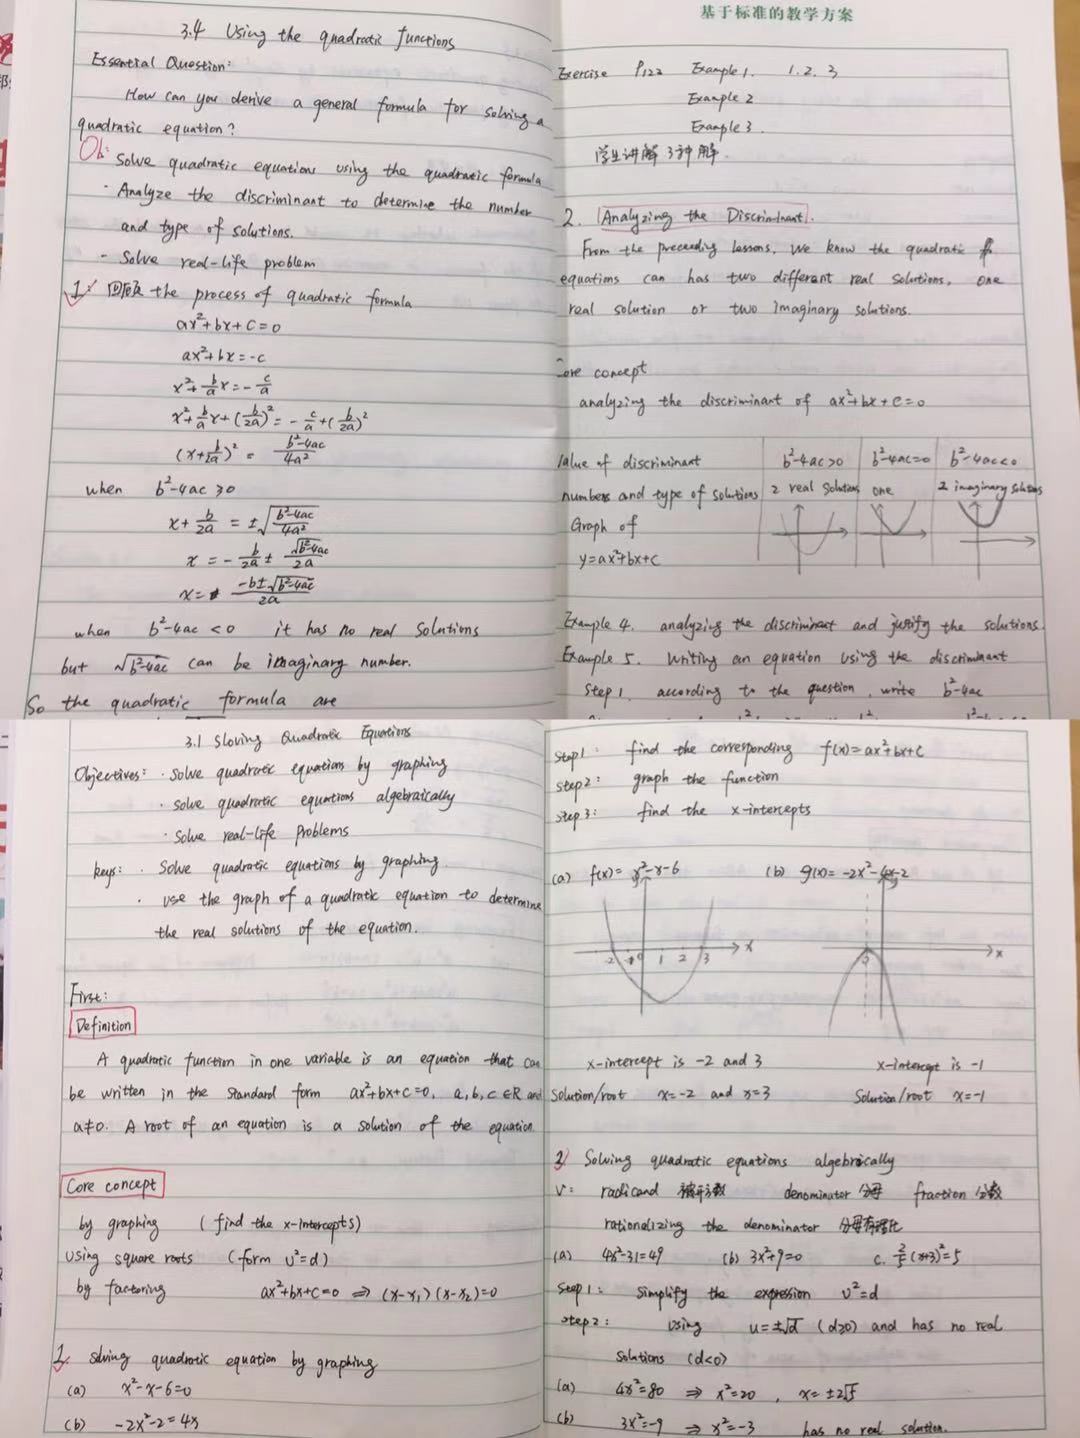 3.4 Using the quadratic functions
Essential Question:
How can you derive a general formula for solving a
quadratic equation?
Ob:
Solve quadratic equations using the quadratic formula
· Analyze the discriminant to determine the number
and type of solutions.
- Solve real-life problem
1. 回顾 the process of quadratic formula
ax²+bx+c=0
ax²+bx=-c
x²+b/a x=-c/a
x²+b/a x+(b/2a)²=-c/a+(b/2a)²
(x+b/2a)²= b²-4ac/4a²
when b²-4ac≥0
x+b/2a=±√(b²-4ac/4a²)
x=-b/2a±√(b²-4ac)/2a
x= -b±√(b²-4ac)/2a
when b²-4ac<0 it has no real solutions
but √(b²-4ac) can be imaginary number.
So the quadratic formula are
基于标准的教学方案
Exercise P122 Example 1. 1.2.3
Example 2
Example 3.
学生讲解 3种解.
2. Analyzing the Discriminant.
From the preceeding lessons, we know the quadratic
equations can has two different real solutions, one
real solution or two imaginary solutions.
Core concept
analyzing the discriminant of ax²+bx+c=0
Value of discriminant b²-4ac>0 b²-4ac=0 b²-4ac<0
numbers and type of solutions 2 real solutions one 2 imaginary solutions
Graph of
y=ax²+bx+c
Example 4. analyzing the discriminant and justify the solutions.
Example 5. Writing an equation using the discriminant
Step 1. according to the question, write b²-4ac
3.1 Sloving Quadratic Equations
Objectives: · solve quadratic equations by graphing
· solve quadratic equations algebraically
· Solve real-life problems
keys: · Solve quadratic equations by graphing.
· use the graph of a quadratic equation to determine
the real solutions of the equation.
First:
Definition
A quadratic function in one variable is an equation that can
be written in the standard form ax²+bx+c=0, a,b,c∈R and
a≠0. A root of an equation is a solution of the equation.
Core concept
by graphing (find the x-intercepts)
using square roots (form u²=d)
by factoring ax²+bx+c=0 ⇒ (x-x₁)(x-x₂)=0
1. Solving quadratic equation by graphing
(a) x²-x-6=0
(b) -2x²-2=4x
step1: find the corresponding f(x)=ax²+bx+c
step2: graph the function
step3: find the x-intercepts
(a) f(x)=x²-x-6 (b) g(x)=-2x²-4x-2
-2 -1 0 1 2 3 x x
x-intercept is -2 and 3 x-intercept is -1
Solution/root x=-2 and x=3 Solution/root x=-1
2 Solving quadratic equations algebraically
V: radicand 被开方数 denominator 分母 fraction 分数
rationalizing the denominator 分母有理化
(a) 4x²-31=49 (b) 3x²+9=0 c. 2/5(x+3)²=5
Step1: simplify the expression u²=d
step2: using u=±√d (d≥0) and has no real
solutions (d<0)
(a) 4x²=80 ⇒ x²=20, x=±2√5
(b) 3x²=-9 ⇒ x²=-3 has no real solution.